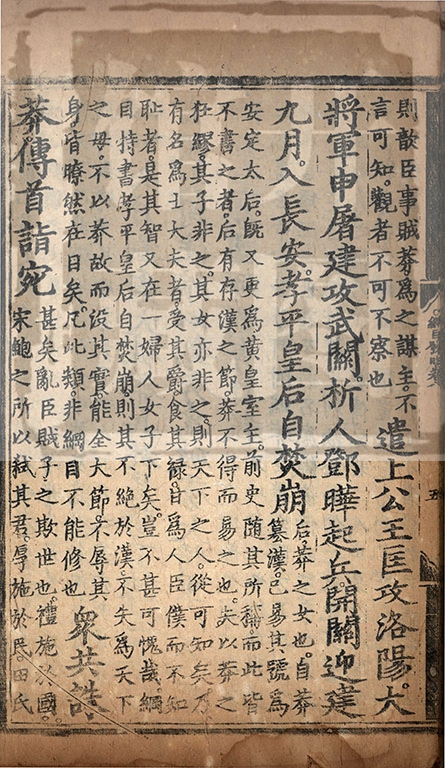 則歆臣事賊莽爲之謀主。不
言可知。觀者不可不察也
遣上公王匡攻洛陽。大
將軍申屠建攻武關。析人鄧曄起兵。開關迎建
九月。入長安。孝平皇后自焚崩
后莽之女也。自莽
簒漢。已易其號爲
安定太后。旣又更爲黄皇室主。前史隨其所稱。而此皆
不書之者。后有存漢之節。莽不得而易之也。夫以莽之
狂繆。其子非之。其女亦非之。則天下之人。從可知矣。乃
有名爲士大夫者。受其爵。食其祿。甘爲人臣僕。而不知
恥者。是其智又在一婦人女子下矣。豈不甚可愧哉。綱
目特書孝平皇后自焚崩。則其不絶於漢。不失爲天下
之母。不以莽故而没其實。能全大節。不辱其
身。皆瞭然在目矣。凡此類。非綱目不能修也
衆共誅
莽傳首詣宛
甚矣。亂臣賊子之欺世也。禮施於國。
宋鮑之所以弑其君。厚施於民。田氏
五